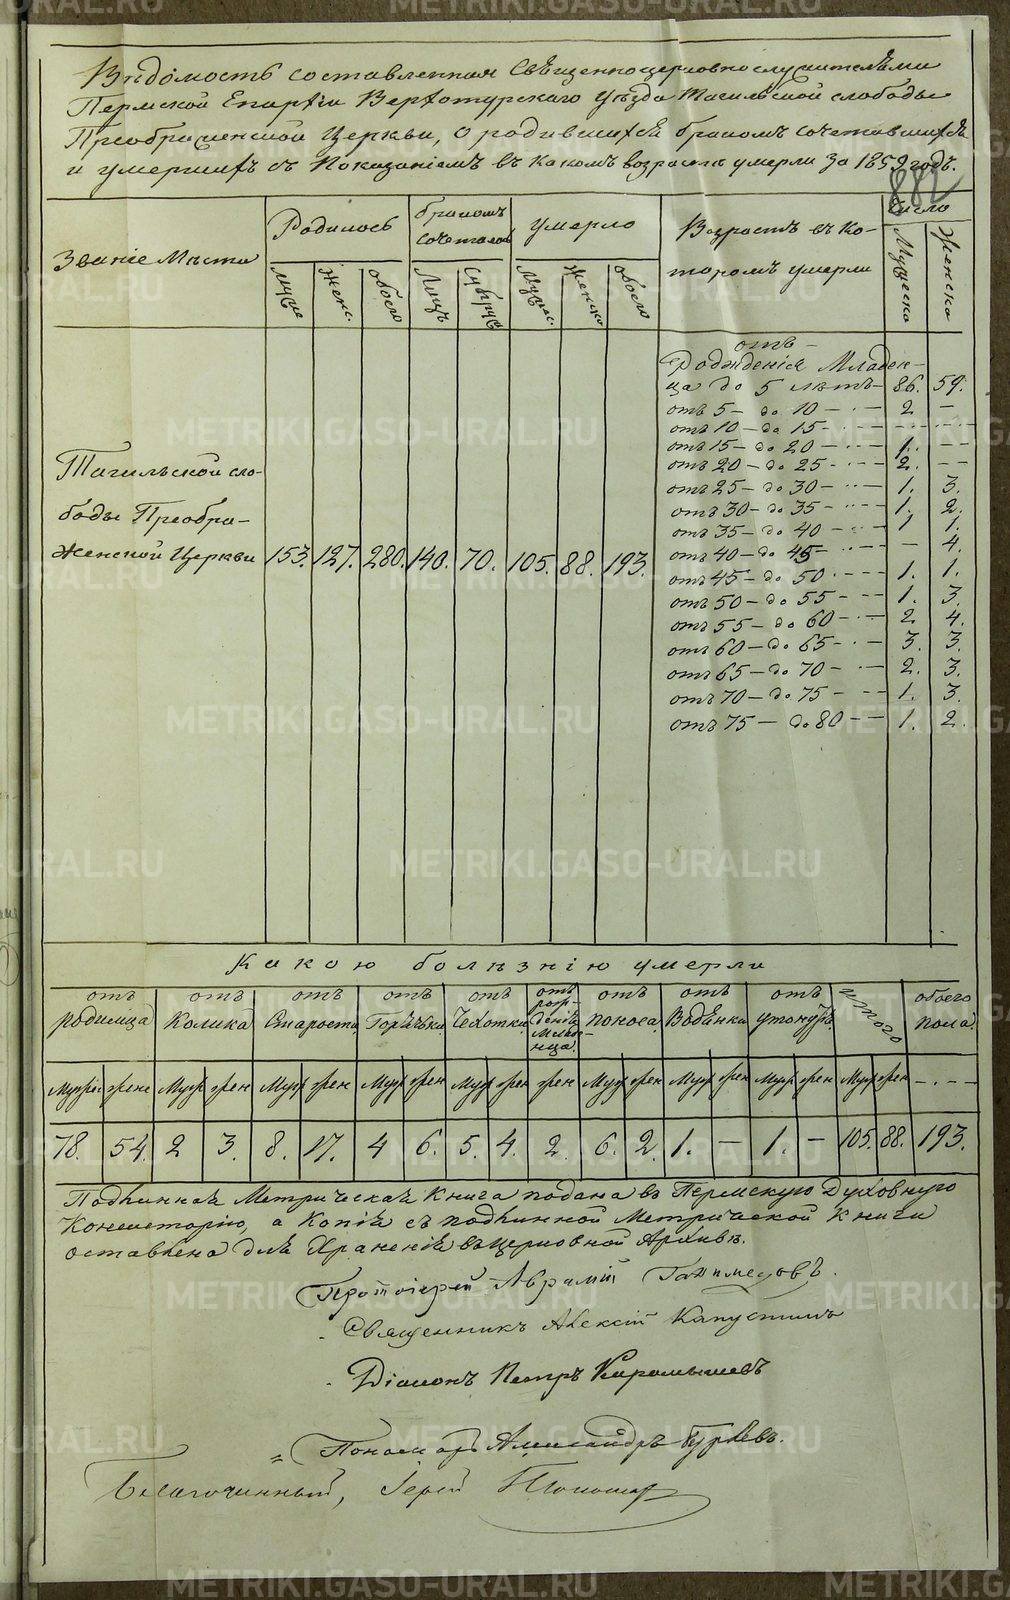 Вѣдомость составленная Священноцерковнослужителями
Пермской Епархіи Верхотурскаго Уѣзда Тагильской слободы
Преображенской Церкви, о родившихся бракомъ сочетавшихся
и умершихъ съ Показаніемъ въ какомъ возрастѣ умерли за 1859 годъ.
882
Званіе Мѣста
Родилось
бракомъ сочеталось
умерло
Возрастъ въ Ко-
торомъ умерли
Число
Мужс
Женс.
обоего
Лицъ
Супруж
Мужес.
Женско
обоего
Мужеска
Женска
Тагильской сло-
боды Преобра-
женской Церкви 153. 127. 280. 140. 70. 105. 88. 193.
отъ –
Рожденія Младен-
ца до 5 лѣтъ – 86. 59.
отъ 5 – до 10 – 2 –
отъ 10 – до 15 – – –
отъ 15 – до 20 – 1. –
отъ 20 – до 25 – 2. –
отъ 25 – до 30 – 1. 3.
отъ 30 – до 35 – 1. 2.
отъ 35 – до 40 – 1 1.
отъ 40 – до 45 – – 4.
отъ 45 – до 50 – 1. 1.
отъ 50 – до 55 – 1. 3.
отъ 55 – до 60 – 2. 4.
отъ 60 – до 65 – 3. 3.
отъ 65 – до 70 – 2. 3.
отъ 70 – до 75 – 1. 3.
отъ 75 – до 80 – 1. 2.
Какою болѣзнію умерли
отъ родимца
отъ Колика
отъ Старости
отъ Горячьки
отъ Чехотки
отъ рожденія Младенца
отъ поноса
отъ Водянки
отъ утонутъ
итого
обоего пола
Мужес жене Муж жен Муж жен Муж жен Муж жен жен Муж жен Муж жен Муж жен Муж жен – . – –
78. 54. 2 3. 8. 17. 4 6. 5. 4. 2. 6. 2. 1. – 1. – 105. 88. 193.
Подлинная Метрическая Книга подана въ Пермскую Духовную
Консисторію, а Копія съ подлинной Метрической Книги
оставлена для Храненія въ Церковной Архивѣ.
Протоіерей Авраамій Ганимедовъ.
Священникъ Алексій Капустинъ
Діаконъ Петръ Карамышевъ
Пономарь Александръ
Благочинный, Іерей
METRIKI.GASO-URAL.RU